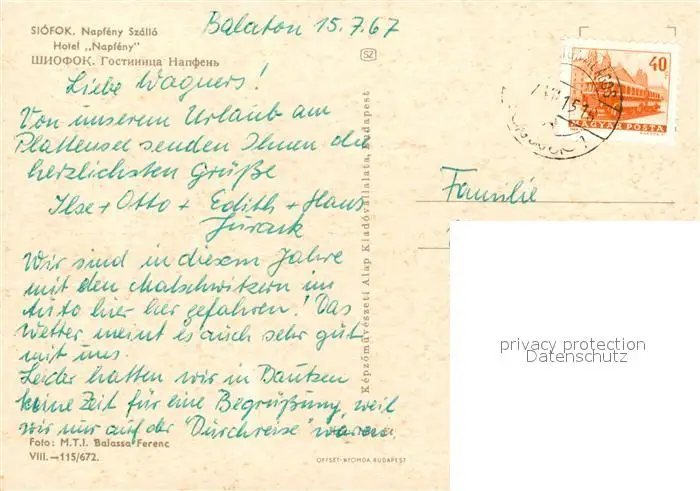 SIÓFOK. Napfény Szálló
Hotel „Napfény"
ШИОФОК. Гостиница Напфень
Balaton 15.7.67
Liebe Wagners!
Von unserem Urlaub am
Plattensee senden Ihnen die
herzlichsten Grüße
Ilse + Otto + Edith + Hans
Wir sind in diesem Jahre
mit den Malschwitzern im
Auto hier her gefahren! Das
Wetter meint es auch sehr gut
mit uns.
Leider hatten wir in Bautzen
keine Zeit für eine Begrüßung, weil
wir nur auf der "Durchreise" waren.
Foto: M.T.I. Balassa Ferenc
VIII.—115/672.
SZ
Képzőművészeti Alap Kiadóvállalata, Budapest
OFFSET-NYOMDA BUDAPEST
40
MAGYAR POSTA
Familie
privacy protection
Datenschutz